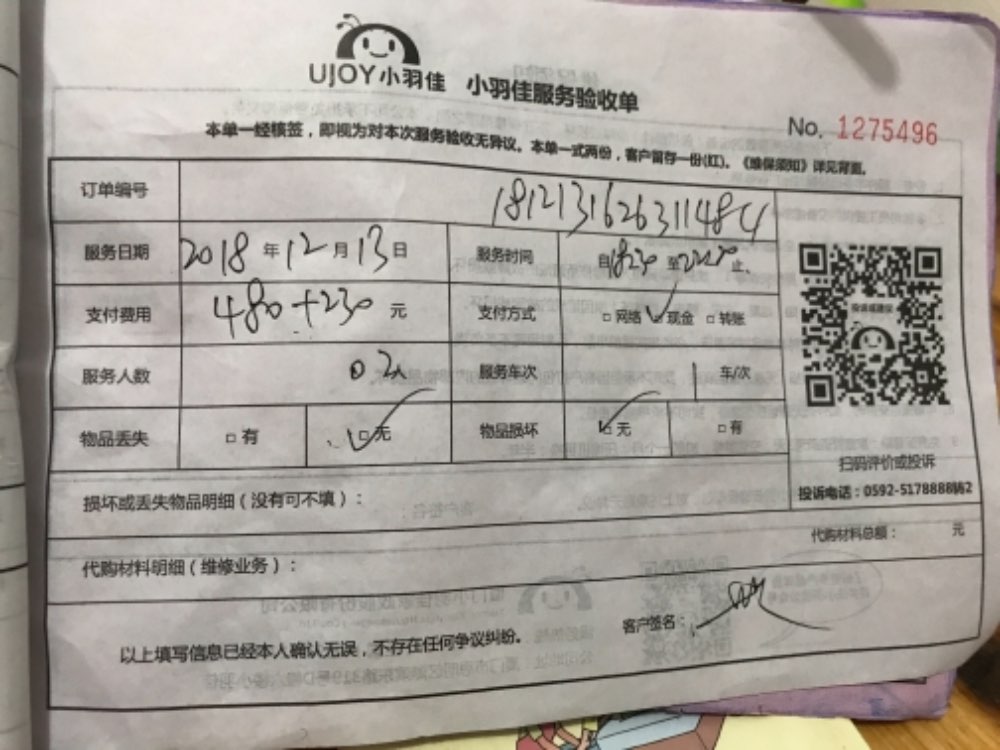 UJOY小羽佳 小羽佳服务验收单
No. 1275496
本单一经核签，即视为对本次服务验收无异议。本单一式两份，客户留存一份(红)。《维保须知》详见背面。
订单编号 1812131626311484
服务日期 2018 年 12 月 13 日 服务时间 自1830 至 止.
支付费用 480+230 元 支付方式 □网络 □现金 □转账
服务人数 02人 服务车次 1 车/次
物品丢失 □有 □无 物品损坏 □无 □有
扫码评价或投诉
投诉电话：0592-5178888
损坏或丢失物品明细（没有可不填）：
代购材料总额： 元
代购材料明细（维修业务）：
客户签名：
以上填写信息已经本人确认无误，不存在任何争议纠纷。